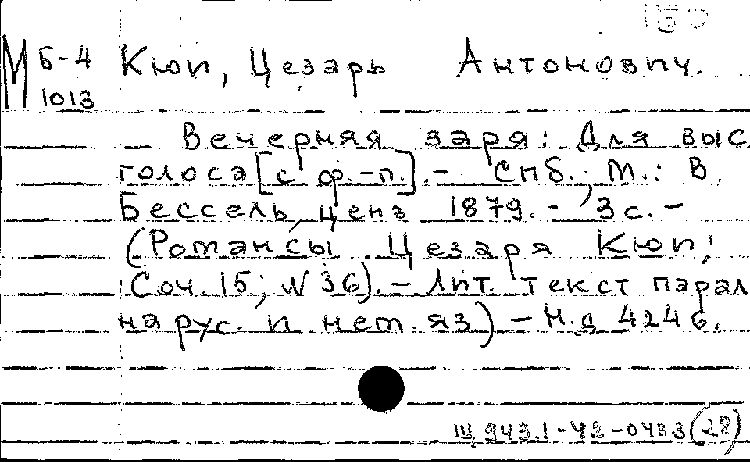 М Б-4 Кюи, Цезарь Антонович.
1013
Вечерняя заря: Для выс
голоса [с ф.-п.]. - Спб.; М.: В.
Бессель, ценз 1879. - 3 с. -
(Романсы Цезаря Кюи;
Соч. 15; N 36). - Лит. текст парал
на рус. и нем. яз) - Н.д 4246.
Щ 943.1-42-0483 (28)